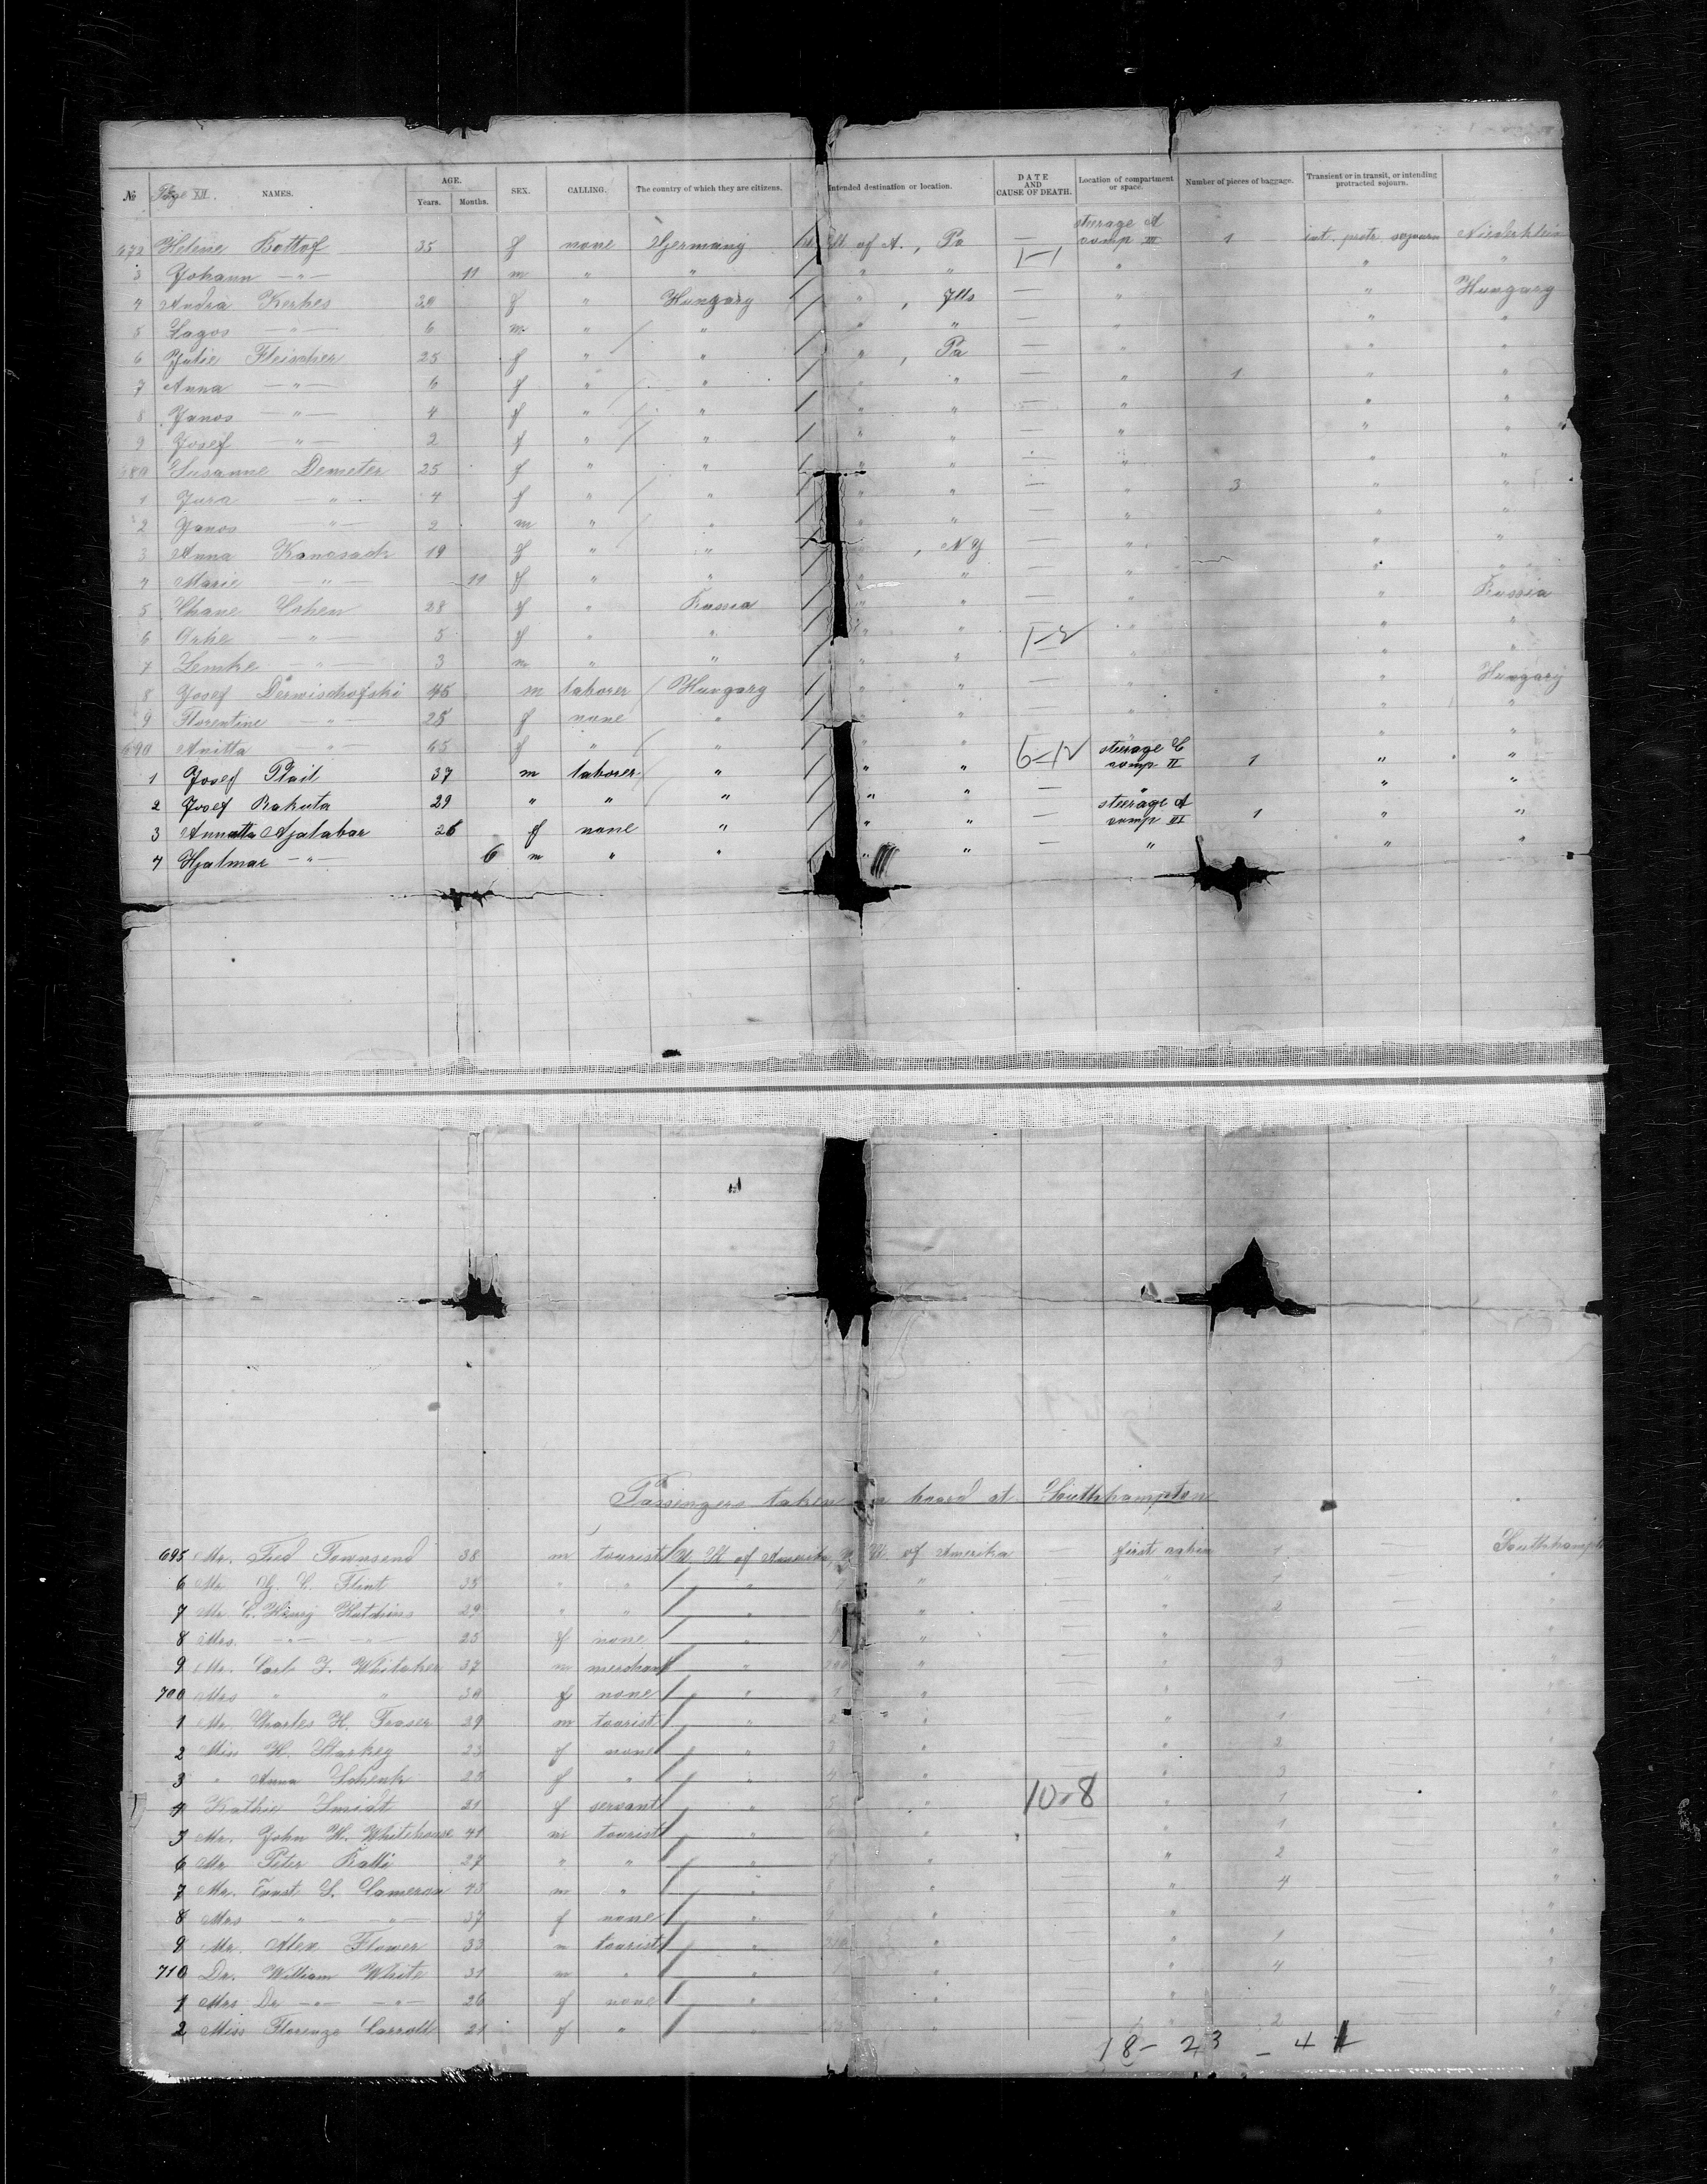 № Page XII. NAMES. AGE. Years. Months. SEX. CALLING. The country of which they are citizens. Intended destination or location. DATE AND CAUSE OF DEATH. Location of compartment or space. Number of pieces of baggage. Transient or in transit, or intending protracted sojourn.
672 Helene Kottof 35 f none Germany U. St. of A., Pa — steerage A comp III 1 int. protr. sojourn Niederklein
1-1
3 Johann —"— 11 m " " " " — " " "
4 Andra Kerkes 29 f " Hungary " , Ills — " " Hungary
5 Lagos —"— 6 m " " " " — " " "
6 Julie Fleischer 25 f " " " , Pa — " " "
7 Anna —"— 6 f " " " " — " 1 " "
8 Janos —"— 4 f " " " " — " " "
9 Josef —"— 2 f " " " " — " " "
680 Susanne Demeter 25 f " " " " — " " "
1 Jura —"— 4 f " " " " — " 3 " "
2 Janos —"— 2 m " " " " — " " "
3 Anna Kanosach 19 f " " , NY — " " "
4 Marie —"— 11 f " " " " — " " "
5 Chane Cohen 28 f " Russia " " — " " Russia
6 Orke —"— 5 f " " " " " " "
1-2
7 Lemke —"— 3 m " " " " — " " "
8 Josef Derwischofski 45 m laborer Hungary " " — " " Hungary
9 Florentine —"— 25 f none " " " — " " "
690 Anitta —"— 65 f " " " " " "
6-12
1 Josef Plail 37 m laborer " " " steerage C comp II 1 " "
2 Josef Rakuta 29 " " " " " — " " "
3 Annatta Ajalabar 26 f none " " " — steerage A comp III 1 " "
4 Hjalmar —"— 6 m " " " " — " " "
Passengers taken on board at Southhampton
695 Mr. Fred Townsend 38 m tourist U. St. of Amerika, U. St. of Amerika — first cabin 1 — Southhampton
6 Mr G. C. Flint 35 " " " " — " 1 — "
7 Mr C. Henry Hutchins 29 " " " " — " 2 — "
8 Mrs. —"— —"— 25 f none " " — " — "
9 Mr. Carl F. Whitaker 37 m merchant " " — " 3 — "
700 Mrs " " 30 f none " " — " — "
1 Mr. Charles H. Fraser 39 m tourist " " — " 1 — "
2 Miss H. Starkey 23 f none " " — " 2 — "
3 " Anna Schenk 25 f " " " — " 3 — "
4 Kathie Smidt 21 f servant " " " 1 — "
10-8
5 Mr. John H. Whitehouse 41 m tourist " " " 1 — "
6 Mr Peter Ralli 27 " " " " — " 2 — "
7 Mr. Ernst S. Cameron 45 m " " " — " 4 — "
8 Mrs —"— —"— 37 f none " " — " — "
9 Mr. Alex Flower 33 m tourist " " — " 1 — "
710 Dr. William White 31 m " " " — " 4 — "
1 Mrs Dr —"— —"— 26 f none " " — " — "
2 Miss Florenze Carroll 21 f " " " — " 2 — "
18-23-41